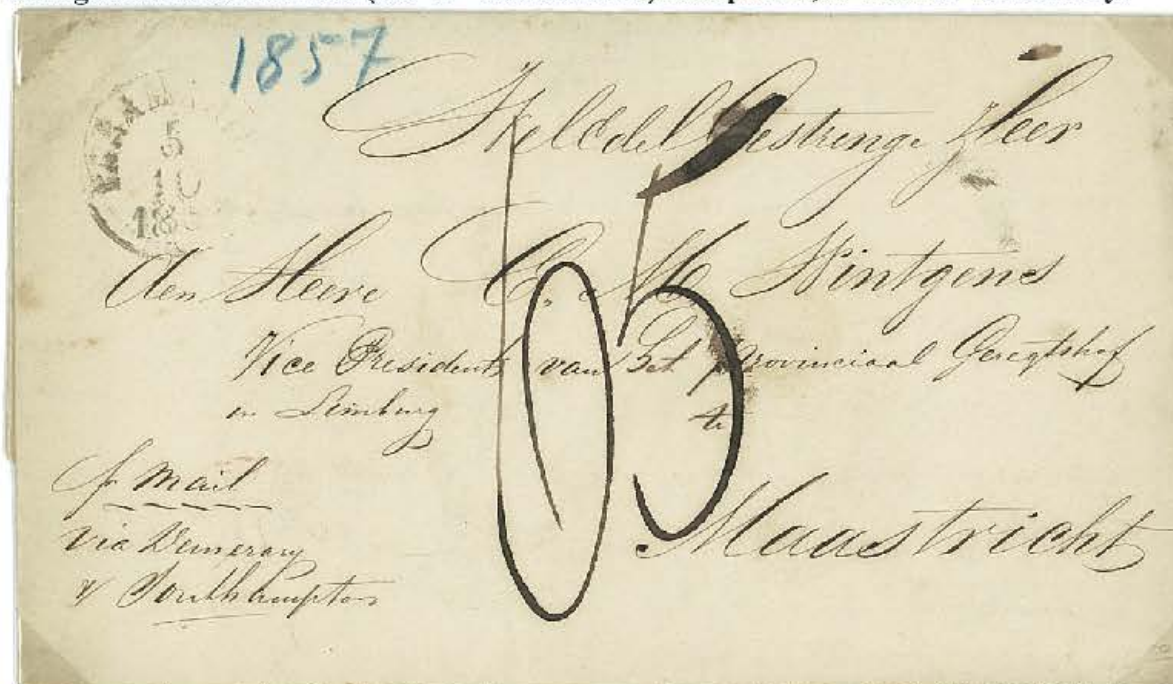 1857
PARAM
5
10
185
WelEdel Gestrenge Heer
den Heere C. M. Nintgens
Vice President van het Provinciaal Geregtshof
in Limburg
te
Maastricht
65
pr Mail
via Demerary
& Southampton